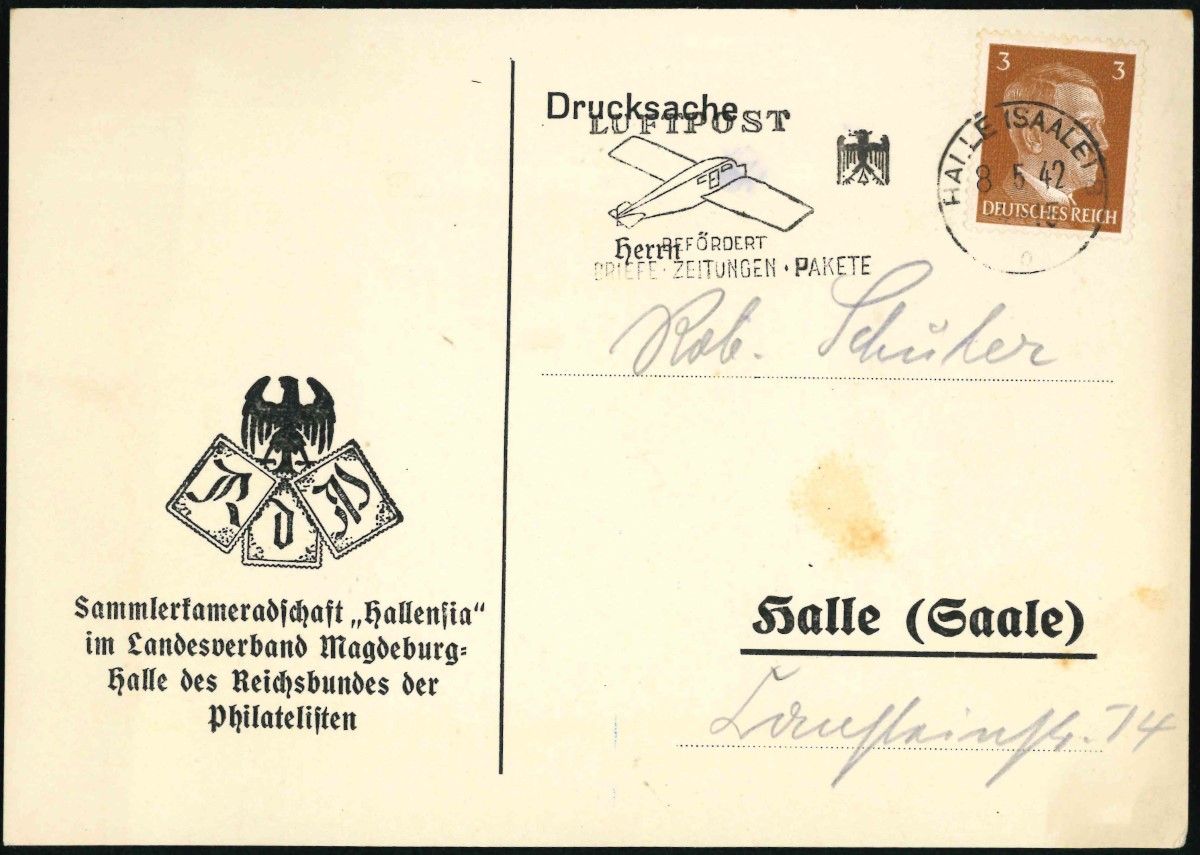 Drucksache
LUFTPOST
BEFÖRDERT
BRIEFE · ZEITUNGEN · PAKETE
3 3
DEUTSCHES REICH
HALLE (SAALE)
8 5 42
Herrn
Rob. Schüler
R d P
Sammlerkameradschaft „Hallensia“
im Landesverband Magdeburg-
Halle des Reichsbundes der
Philatelisten
Halle (Saale)
74